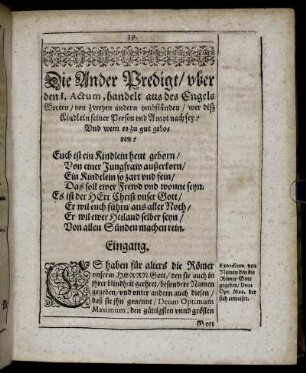 39.
Die Ander Predigt / vber
den I. Actum, handelt aus des Engels
Worten / von zweyen andern vmbständen / wer diß
Kindlein seiner Person vnd Ampt nach sey:
Vnd wem es zu gut gebo-
ren:
Euch ist ein Kindlein heut geborn /
Von einer Jungfraw außerkorn /
Ein Kindelein so zart vnd fein /
Das soll ewer Frewd vnd wonne seyn.
Es ist der HErr Christ vnser Gott /
Er wil euch führn aus aller Noth /
Er wil ewer Heiland selber seyn /
Von allen Sünden machen rein.
Eingang.
ES haben für alters die Römer
vnserm HERRN Gott / den sie auch in
jhrer blindheit geehret / besondere Namen
gegeben / vnd vnter andern auch diesen /
daß sie jhn genennt / Deum Optimum
Maximum, den gütigsten vnnd grösten
Gott
Namen den die
Römer Gott
gegeben / Deus
Opt. Max. der
sich